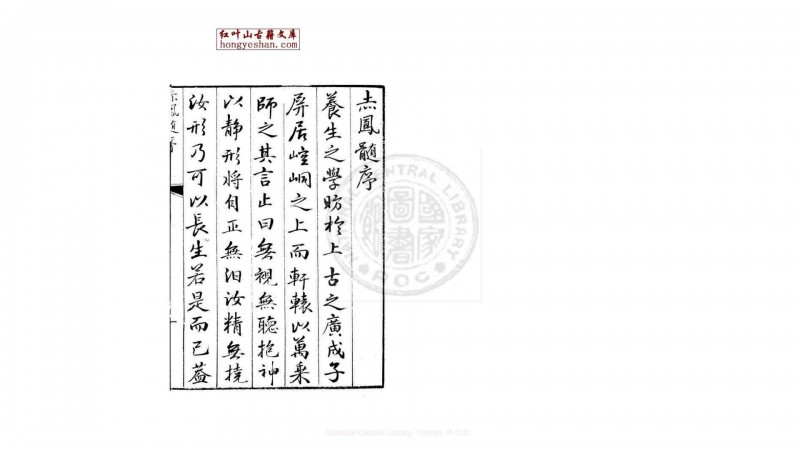 红叶山古籍文库
hongyeshan.com
赤鳳髓序
養生之學昉於上古之廣成子
屏居崆峒之上而軒轅以萬乘
師之其言止曰無視無聽抱神
以靜形將自正無汨汝精無撓
汝形乃可以長生若是而已蓋
NATIONAL CENTRAL LIBRARY
國家
圖
書館
ROC
National Central Library, Taiwan,